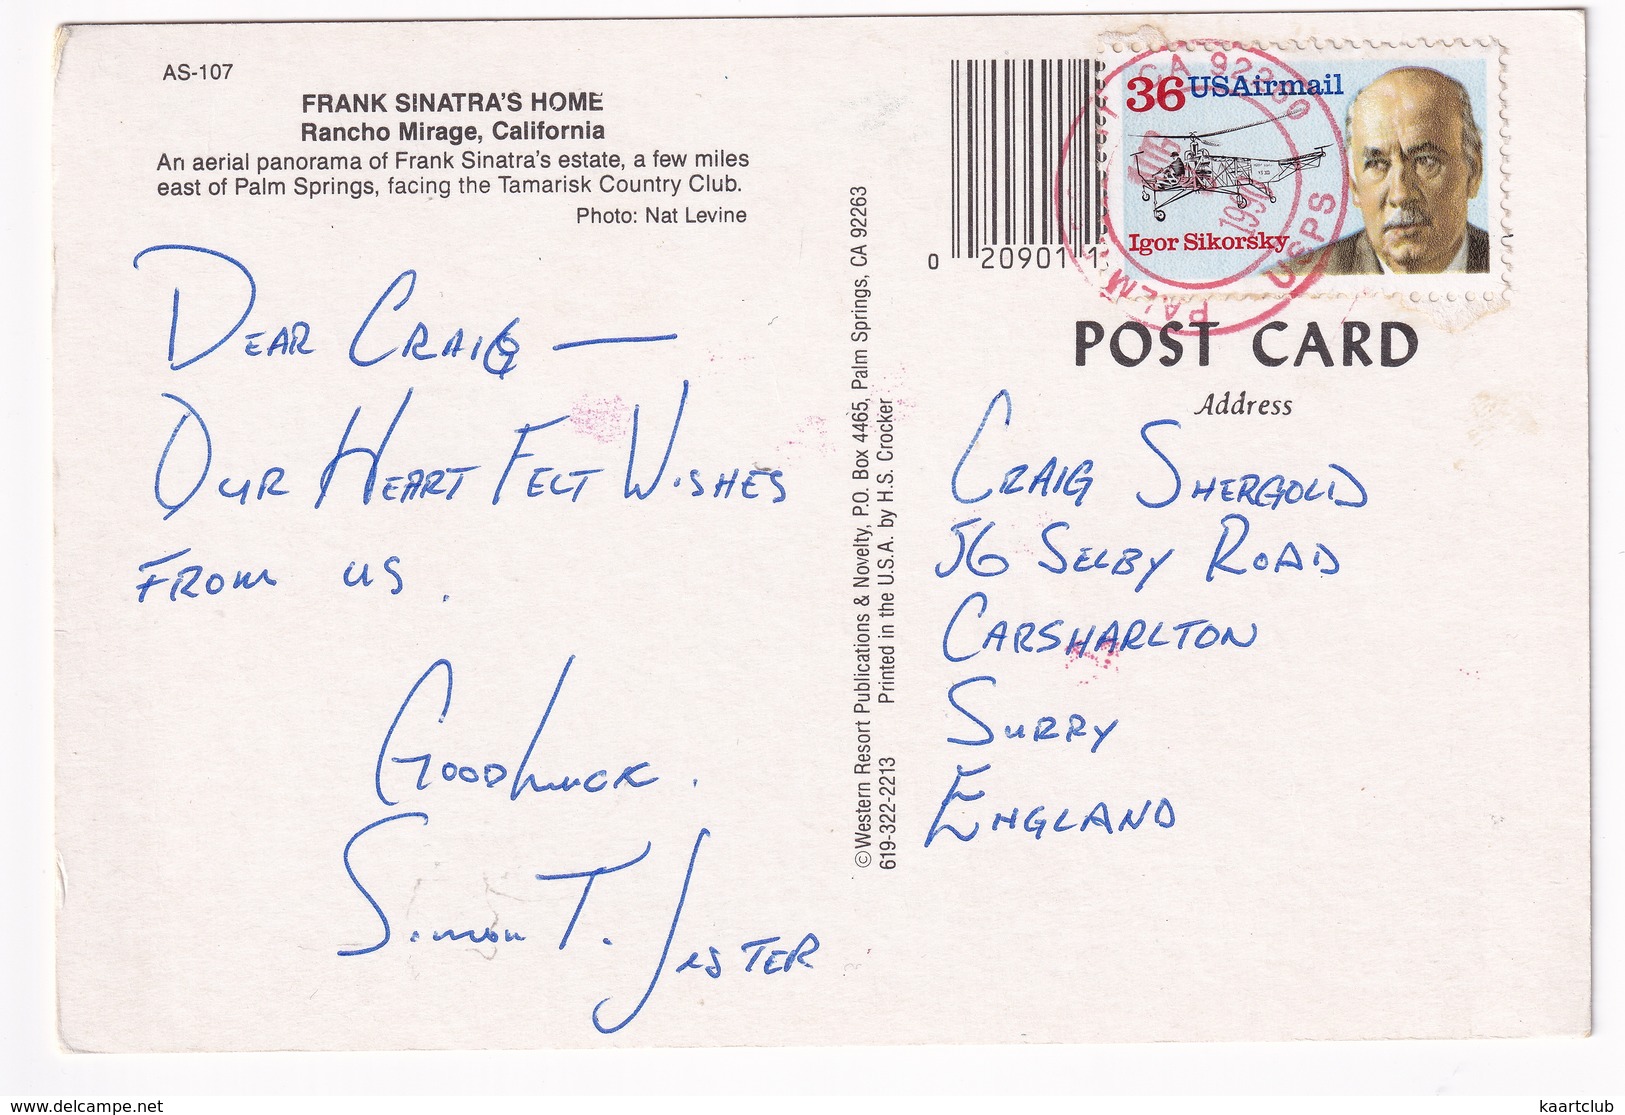 AS-107
FRANK SINATRA'S HOME
Rancho Mirage, California
An aerial panorama of Frank Sinatra's estate, a few miles
east of Palm Springs, facing the Tamarisk Country Club.
Photo: Nat Levine
DEAR CRAIG —
OUR HEART FELT WISHES
FROM US.
GOOD LUCK.
SIMON T. JESTER
©Western Resort Publications & Novelty, P.O. Box 4465, Palm Springs, CA 92263
619-322-2213 Printed in the U.S.A. by H.S. Crocker
0 20901 1
36 USAirmail
Igor Sikorsky
PALM CA
1990
USPS
POST CARD
Address
CRAIG SHERGOLD
56 SELBY ROAD
CARSHARLTON
SURRY
ENGLAND
www.delcampe.net
kaartclub